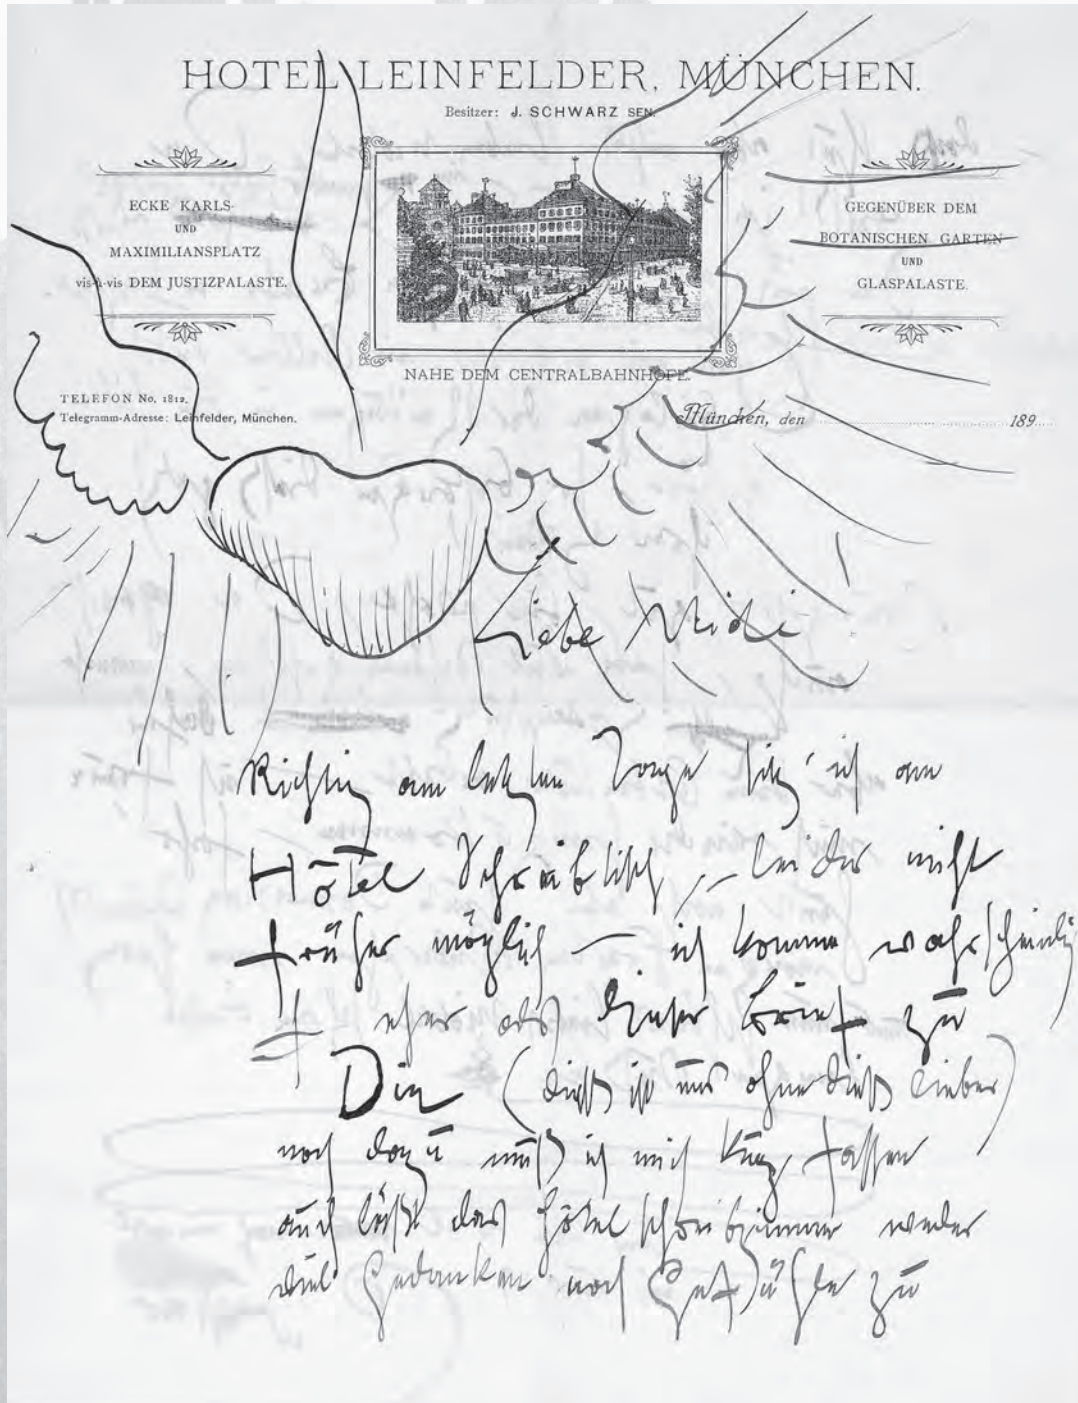 HOTEL LEINFELDER, MÜNCHEN.
Besitzer: J. SCHWARZ SEN.
ECKE KARLS-
UND
MAXIMILIANSPLATZ
vis-à-vis DEM JUSTIZPALASTE.
GEGENÜBER DEM
BOTANISCHEN GARTEN
UND
GLASPALASTE.
NAHE DEM CENTRALBAHNHOFE.
TELEFON No. 1812.
Telegramm-Adresse: Leinfelder, München.
München, den 189
Liebe
Richtig am letzten Tage sitz' ich am
Hôtel Schreibtisch, – leider nicht
früher möglich – ich komme wahrscheinlich
eher als dieser Brief zu
Dir (dieß ist mir ohne dieß lieber)
noch dazu muß ich mich kurz fassen
auch läßt das Hôtel schreibzimmer weder
viel Gedanken noch Gefühle zu